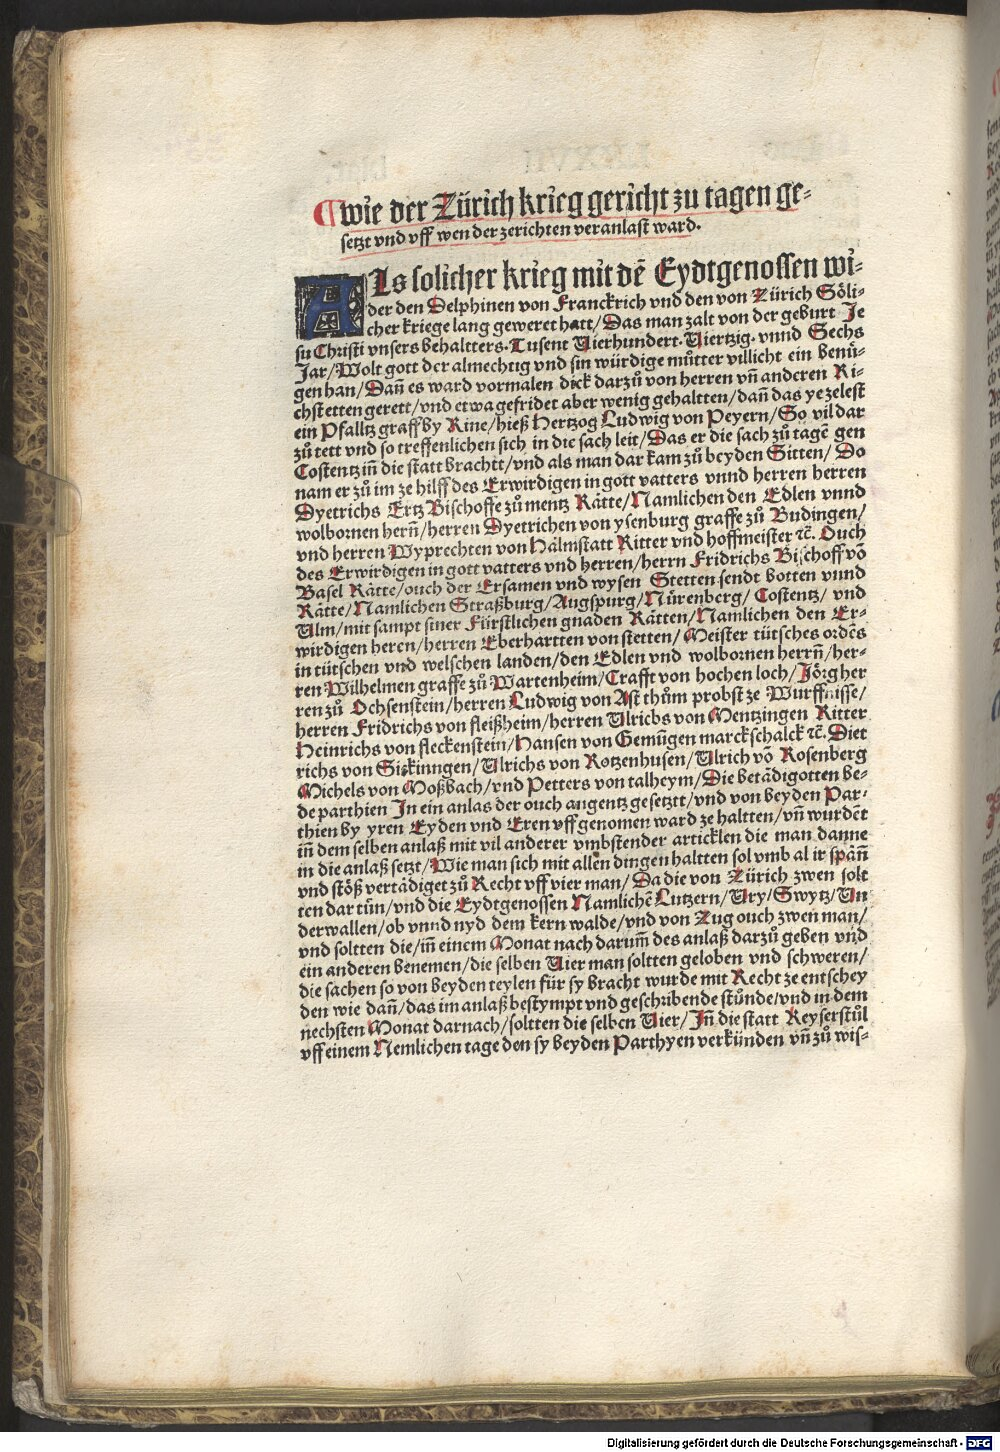 ¶ wie der Zürich krieg gericht zu tagen ge⸗
setzt vnd vff wen der zerichten veranlast ward.
Als solicher krieg mit dē Eydtgenossen wi⸗
der den Delphinen von Franckrich vnd den von Zürich Söli⸗
cher kriege lang geweret hatt/Das man zalt von der geburt Je
su Christi vnsers behaltters. Tusent Vierhundert. Viertzig. vnnd Sechs
Jar/Wolt gott der almechtig vnd sin würdige můtter villicht ein benü⸗
gen han/Dañ es ward vormalen dick darzů von herren vñ anderen Ri⸗
chstetten gerett/vnd etwa gefridet aber wenig gehaltten/dañ das ye zelest
ein Pfalltz graff by Rine/hieß Hertzog Ludwig von Peyern/So vil dar
zů tett vnd so treffenlichen sich in die sach leit/Das er die sach zů tagē gen
Costentz iñ die statt brachtt/vnd als man dar kam zů beyden Sitten/Do
nam er zů im ze hilff des Erwirdigen in gott vatters vnnd herren herren
Dyetrichs Ertz Bischoffe zů mentz Rätte/Namlichen den Edlen vnnd
wolbornen herñ/herren Dyetrichen von ysenburg graffe zů Budingen/
vnd herren Wyprechten von Hälmstatt Ritter vnd hoffmeister ꝛc̄. Ouch
des Erwirdigen in gott vatters vnd herren/herrn Fridrichs Bischoff vō
Basel Rätte/ouch der Ersamen vnd wysen Stetten sendt botten vnnd
Rätte/Namlichen Straßburg/Augspurg/Nürenberg/Costentz/vnd
Ulm/mit sampt siner Fürstlichen gnaden Rätten/Namlichen den Er⸗
wirdigen heren/herren Eberhartten von stetten/Meister tütsches ordēs
in tütschen vnd welschen landen/den Edlen vnd wolbornen herrñ/her⸗
ren Wilhelmen graffe zů Wartenheim/Crafft von hochen loch/Jörg her
ren zů Ochsenstein/herren Ludwig von Ast thům probst ze Wurffnisse/
herren Fridrichs von fleißheim/herren Ulrichs von Mentzingen Ritter
Heinrichs von fleckenstein/Hansen von Gemüngen marckschalck ꝛc̄. Diet
richs von Sickinngen/Ulrichs von Rotzenhusen/Ulrich vō Rosenberg
Michels von Moßbach/vnd Petters von talheym/Die betädigotten be⸗
de parthien In ein anlas der ouch angentz gesetztt/vnd von beyden Par⸗
thien by yren Eyden vnd Eren vff genomen ward ze haltten/vñ wurdēt
iñ dem selben anlaß mit vil anderer vmbstender articklen die man danne
in die anlaß setzt/Wie man sich mit allen dingen haltten sol vmb al ir späñ
vnd stöß vertädiget zů Recht vff vier man/Da die von Zürich zwen solt
ten dar tůn/vnd die Eydtgenossen Namlichē Lutzern/Ury/Swytz/Un
derwallen/ob vnnd nyd dem kern walde/vnd von Zug ouch zwen man/
vnd soltten die/iñ einem Monat nach darum̄ des anlaß darzů geben vnd
ein anderen benemen/die selben Vier man soltten geloben vnd schweren/
die sachen so von beyden teylen für sy bracht wurde mit Recht ze entschey
den wie dañ/das im anlaß bestympt vnd geschribende stůnde/vnd in dem
nechsten Monat darnach/soltten die selben Vier/Iñ die statt Keyserstůl
vff einem Nemlichen tage den sy beyden Parthyen verkünden vñ zů wis⸗
Digitalisierung gefördert durch die Deutsche Forschungsgemeinschaft - DFG